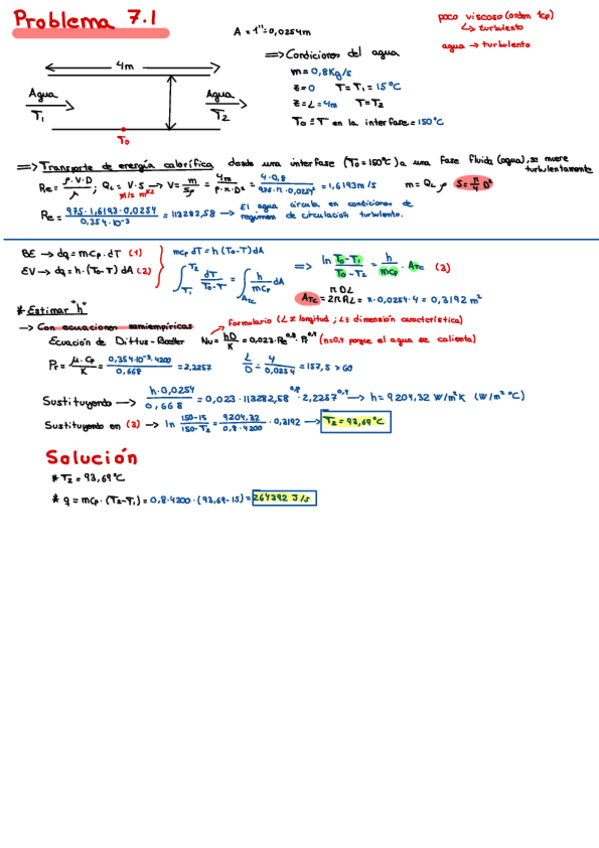 Problema 7.1
A = 1" = 0,0254m
poco viscoso (orden 1cp)
↳ turbulento
agua → turbulento
⟹ Condiciones del agua
4m
m = 0,8 Kg/s
z = 0 T = T₁ = 15°C
z = L = 4m T = T₂
T₀ = T en la interfase = 150°C
Agua T₁
Agua T₂
T₀
⟹ Transporte de energía calorífica desde una interfase (T₀ = 150°C) a una fase fluida (agua), se mueve turbulentamente
Re = ρ·V·D/μ ; Q_L = V·S → V = m/Sρ = 4m/ρ·π·D² = 4·0,8/975·π·0,0254² = 1,6193 m/s m = Q_L ρ S = π/4 D²
m/s m²
Re = 975·1,6193·0,0254/0,354·10⁻³ = 113282,58 → El agua circula en condiciones de regimen de circulación turbulento.
BE → dq = mCp·dT (1)
EV → dq = h·(T₀-T) dA (2)
mCp dT = h (T₀-T) dA
∫_T₁^T₂ dT/T₀-T = ∫_ATC h/mCp dA
⟹ ln T₀-T₁/T₀-T₂ = h/mCp · A_TC (3)
π D L
A_TC = 2πRL = π·0,0254·4 = 0,3192 m²
* Estimar "h"
→ Con ecuaciones semiempíricas
formulario (L ≠ longitud ; L = dimensión característica)
Ecuación de Dittus-Boelter Nu = hD/K = 0,023·Re^0,8·Pr^0,4 (n=0,4 porque el agua se calienta)
Pr = μ·Cp/K = 0,354·10⁻³·4200/0,668 = 2,2257 L/D = 4/0,0254 = 157,5 > 60
Sustituyendo → h·0,0254/0,668 = 0,023·113282,58^0,8·2,2257^0,4 → h = 9204,32 W/m²K (W/m²°C)
Sustituyendo en (3) → ln 150-15/150-T₂ = 9204,32/0,8·4200 · 0,3192 → T₂ = 93,69°C
Solución
* T₂ = 93,69°C
* q = mCp·(T₂-T₁) = 0,8·4200·(93,69-15) = 264392 J/s